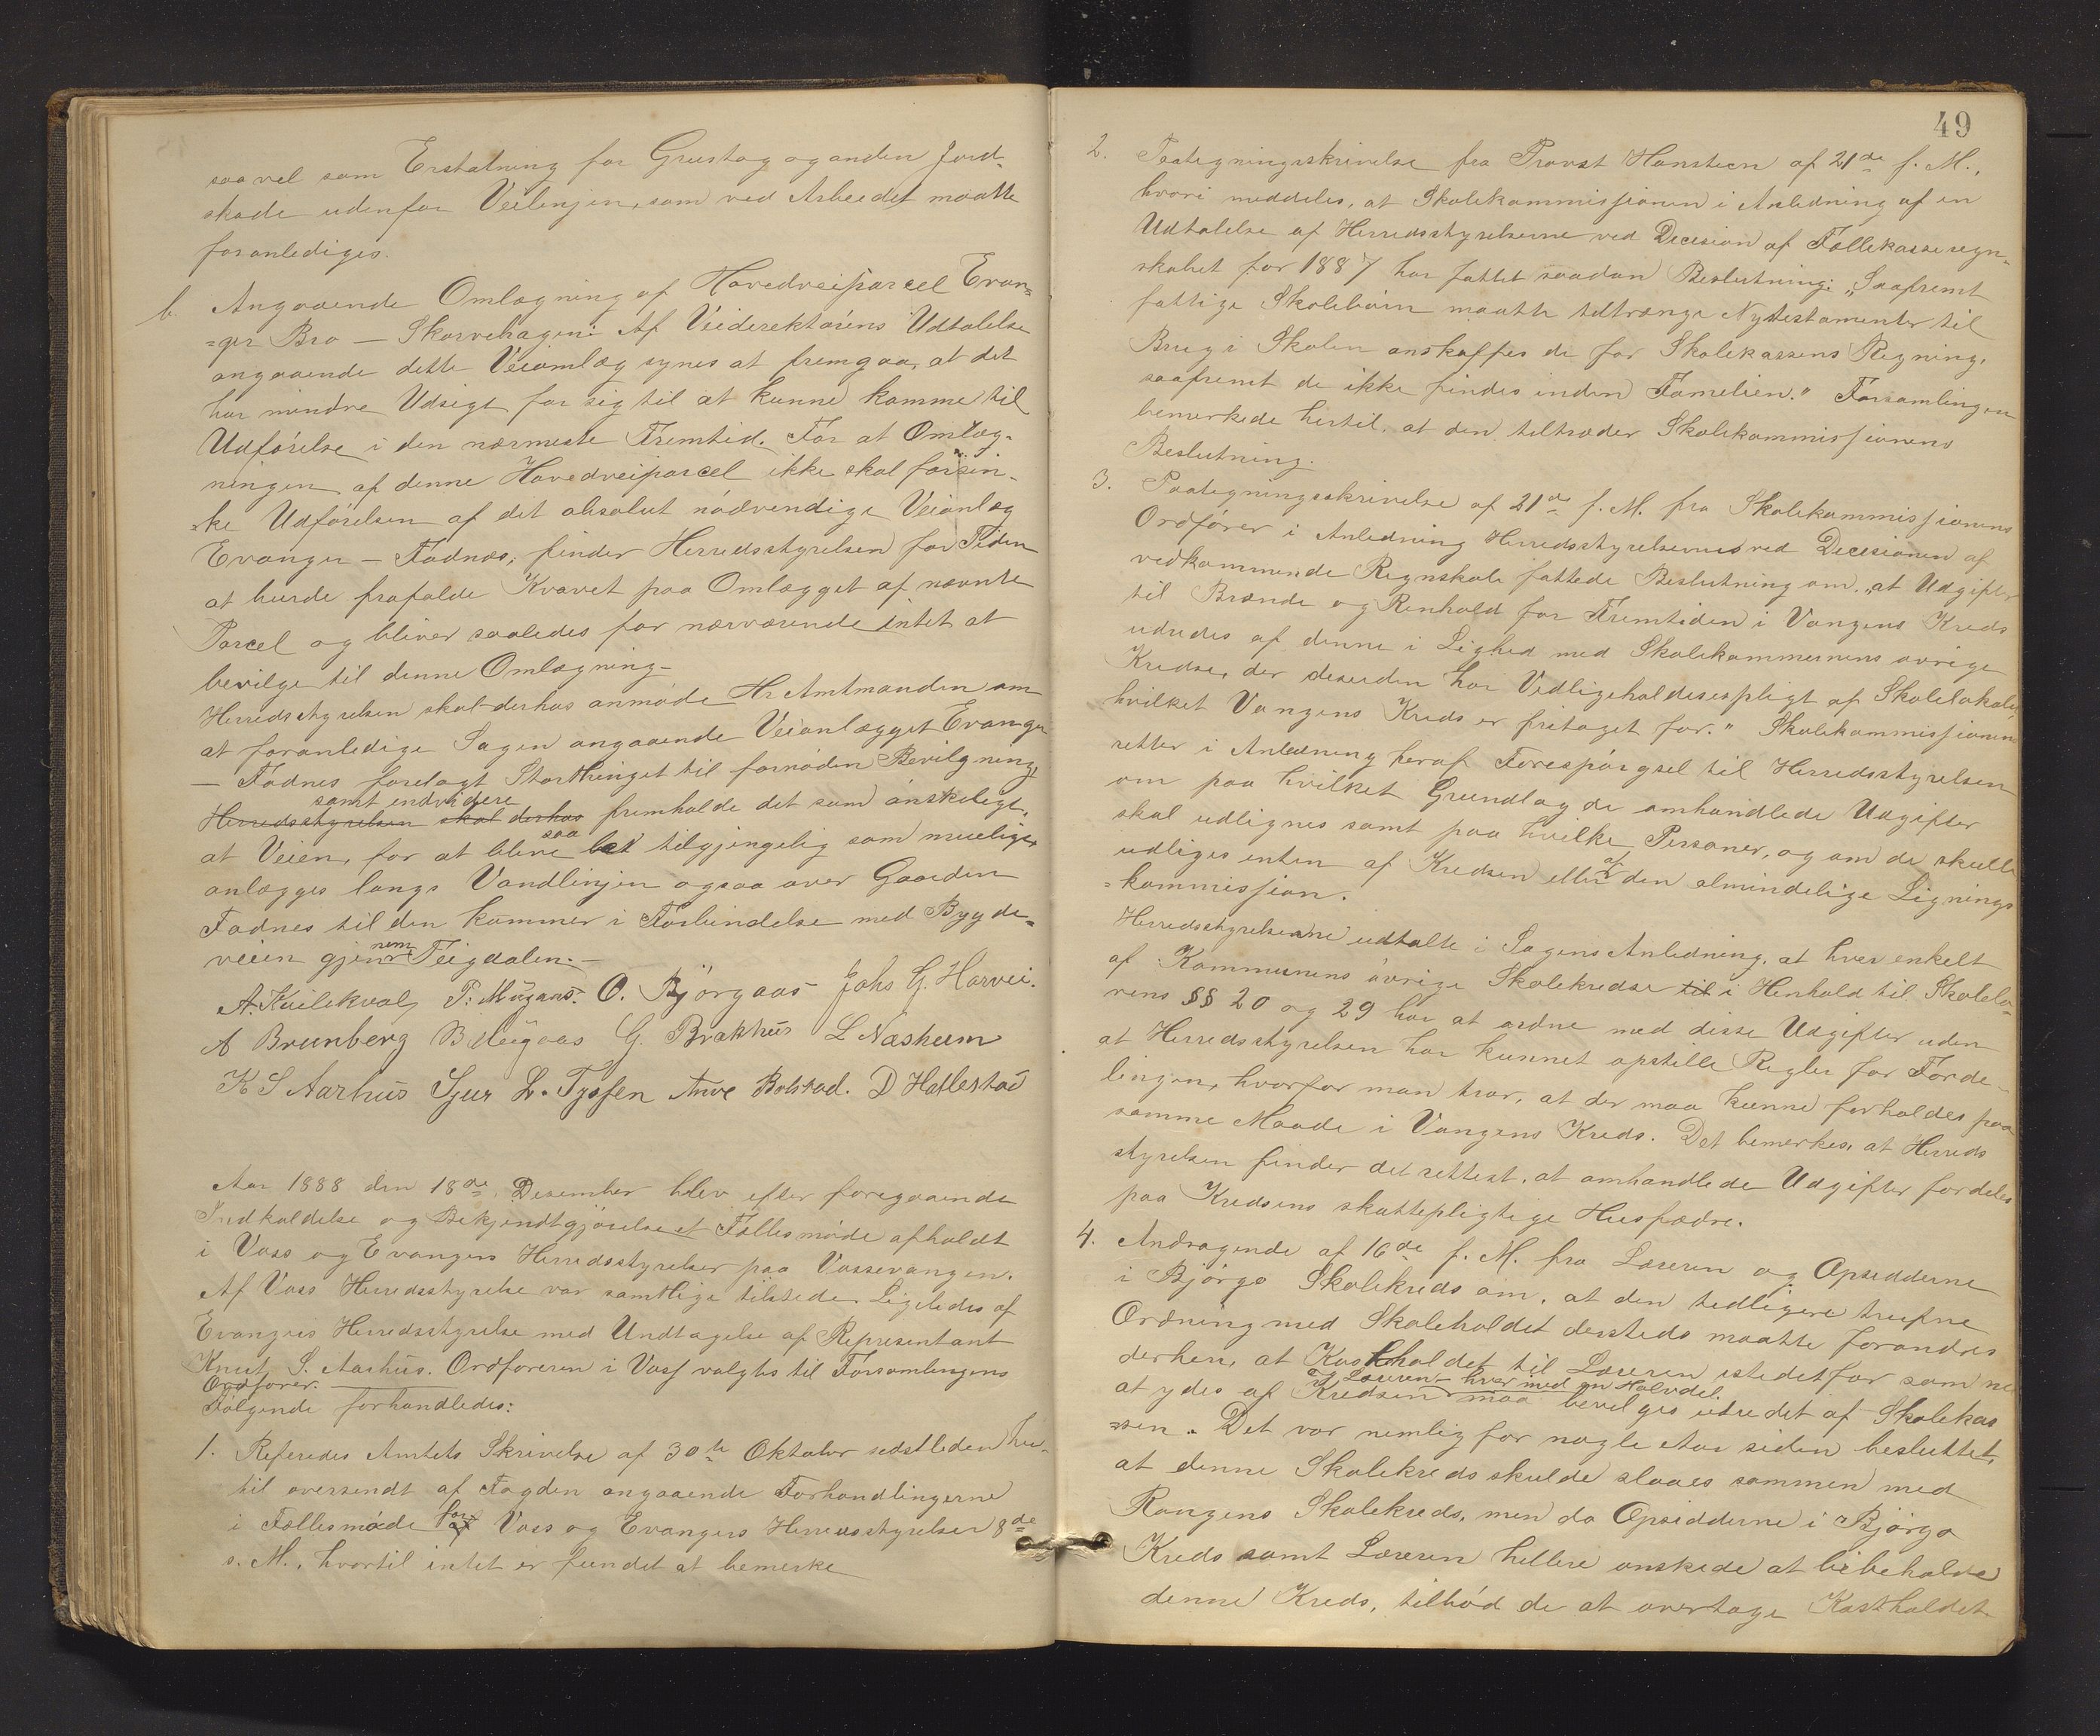 saa vel som Erstatning for Grustag og anden Jord-
skade udenfor Veilinjen, som ved Arbeidet maatte
foranlediges.
b. Angaaende Omlægning af Hovedveiparcel Evan-
=ger Bro — Skorvehagen: Af Veidirektørens Udtalelse
angaaende dette Veiomlæg synes at fremgaa, at det
har mindre Udsigt for sig til at kunne komme til
Udførelse i den nærmeste Fremtid. For at Omlæg-
ningen af denne Hovedveiparcel ikke skal forsin-
ke Udførelsen af det absolut nødvendige Veianlæg
Evanger — Fadnæs, finder Herredsstyrelsen for Tiden
at burde frafalde Kravet paa Omlægget af nævnte
Parcel og bliver saaledes for nærværende intet at
bevilge til denne Omlægning —
Herredsstyrelsen skal derhos anmode Hr Amtmanden om
at foranledige Sagen angaaende Veianlægget Evanger
— Fadnes forelagt Storthinget til fornøden Bevilgning,
samt endvidere
Herredsstyrelsen skal derhos fremholde det som ønskeligt,
at Veien, for at blive saa let tilgjengelig som mueligt
anlægges langs Vandlinjen ogsaa over Gaarden
Fadnes til den kommer i Forbindelse med Bygde-
veien gjennem Teigdalen. —
A. Kvilekval, T. Mügaas. O. Bjørgaas Johs G. Horvei.
A Brunberg B Mügaas G. Brakhus L Næsheim
K S Aarhus Sjur L. Tyssen Anve Bolstad. D Hatlestad
Aar 1888 den 18de Desember blev efter foregaaende
Indkaldelse og Bekjendtgjørelse et Fællesmøde afholdt
i Voss og Evangers Herredsstyrelser paa Vossevangen.
Af Voss Herredsstyrelse var samtlige tilstede. Ligeledes af
Evangers Herredsstyrelse med Undtagelse af Representant
Knut S. Aarhus. Ordføreren i Voss valgtes til Forsamlingens
Ordfører.
Følgende forhandledes:
1. Referedes Amtets Skrivelse af 30te Oktober sidstleden her-
til oversendt af Fogden angaaende Forhandlingerne
i Fællesmøde for Voss og Evangers Herredsstyrelser 8de
s. M., hvortil intet er fundet at bemerke
49
2. Paategningsskrivelse fra Provst Hansteen af 21de f. M.,
hvori meddeles, at Skolekommissionen i Anledning af en
Udtalelse af Herredsstyrelserne ved Decision af Fællekasseregn-
skabet for 1887 har fattet saadan Beslutning: „Saafremt
fattige Skolebørn maatte tiltrænge Nytestamenter til
Brug i Skolen anskaffes de for Skolekassens Regning,
saafremt de ikke findes inden Familien." Forsamlingen
bemerkede hertil, at den tiltræder Skolekommissionens
Beslutning.
3. Paategningsskrivelse af 21de f. M. fra Skolekommissionens
Ordfører i Anledning Herredsstyrelsernes ved Decisionen af
vedkommende Regnskab fattede Beslutning om, „at Udgifter
til Brænde og Renhold for Fremtiden i Vangens Kreds
udredes af denne i Lighed med Skolekommunens øvrige
Kredse, der desuden har Vedligeholdesespligt af Skolelokalet,
hvilket Vangens Kreds er fritaget for." Skolekommissionen
retter i Anledning heraf Forespørgsel til Herredsstyrelsen
om paa hvilket Grundlag de omhandlede Udgifter
skal udlignes samt paa hvilke Personer, og om de skulle
udliges enten af Kredsen eller af den almindelige Lignings-
=kommission.
Herredsstyrelserne udtalte i Sagens Anledning, at hver enkelt
af Kommunens øvrige Skolekredse til i Henhold til Skolelo-
vens §§ 20 og 29 har at ordne med disse Udgifter uden
at Herredsstyrelsen har kunnet opstille Regler for Forde-
lingen, hvorfor man tror, at der maa kunne forholdes paa
samme Maade i Vangens Kreds. Det bemerkes, at Herreds
styrelsen finder det rettest, at omhandlede Udgifter fordeles
paa Kredsens skattepligtige Husfædre.
4. Andragende af 16de f. M. fra Læreren og Opsidderne
i Bjørgo Skolekreds om, at den tedligere trufne
Ordning med Skoleholdet dersteds maatte forandres
derhen, at Kostholdet til Læreren istedetfor som nu
& Læreren — hver med en Halvdel,
at ydes af Kredsen maa bevilges udredet af Skolekas
=sen. Det var nemlig for nogle Aar siden besluttet,
at denne Skolekreds skulde slaaes sammen med
Rongens Skolekreds, men da Opsidderne i Bjørgo
Kreds samt Læreren hellere ønskede at bibeholde
denne Kreds, tilbød de at overtage Kostholdet